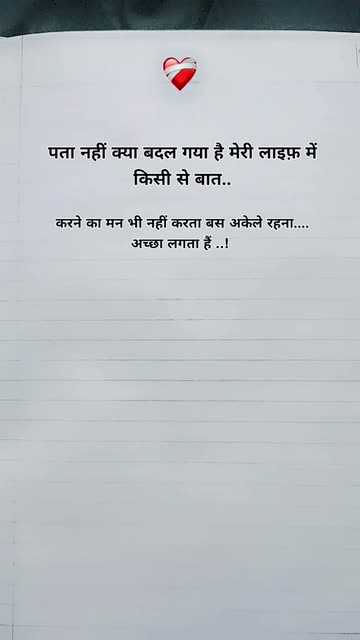 पता नहीं क्या बदल गया है मेरी लाइफ़ में
किसी से बात..
करने का मन भी नहीं करता बस अकेले रहना....
अच्छा लगता हैं ..!